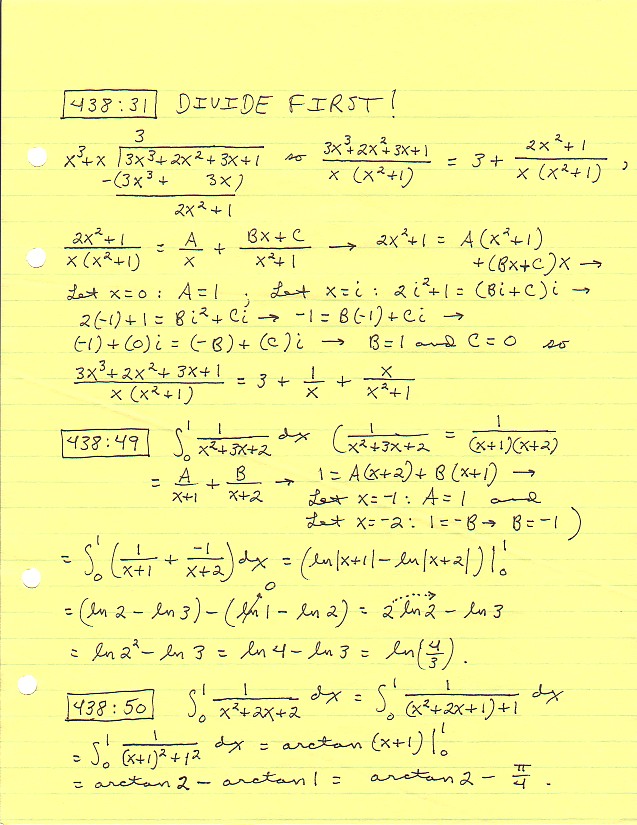 438:31 DIVIDE FIRST!
3
x³+x | 3x³+2x²+3x+1 so (3x³+2x²+3x+1)/(x(x²+1)) = 3 + (2x²+1)/(x(x²+1)),
-(3x³+ 3x)
2x²+1
(2x²+1)/(x(x²+1)) = A/x + (Bx+C)/(x²+1) → 2x²+1 = A(x²+1)
+(Bx+C)x →
Let x=0: A=1; Let x=i: 2i²+1=(Bi+C)i →
2(-1)+1=Bi²+Ci → -1=B(-1)+Ci →
(-1)+(0)i=(-B)+(C)i → B=1 and C=0 so
(3x³+2x²+3x+1)/(x(x²+1)) = 3 + 1/x + x/(x²+1)
438:49 ∫₀¹ 1/(x²+3x+2) dx (1/(x²+3x+2) = 1/((x+1)(x+2))
= A/(x+1) + B/(x+2) → 1=A(x+2)+B(x+1) →
Let x=-1: A=1 and
Let x=-2: 1=-B → B=-1)
= ∫₀¹ (1/(x+1) + -1/(x+2)) dx = (ln|x+1|-ln|x+2|)|₀¹
0
= (ln 2 - ln 3) - (ln 1 - ln 2) = 2 ln 2 - ln 3
= ln 2² - ln 3 = ln 4 - ln 3 = ln(4/3).
438:50 ∫₀¹ 1/(x²+2x+2) dx = ∫₀¹ 1/((x²+2x+1)+1) dx
= ∫₀¹ 1/((x+1)²+1²) dx = arctan(x+1)|₀¹
= arctan 2 - arctan 1 = arctan 2 - π/4.